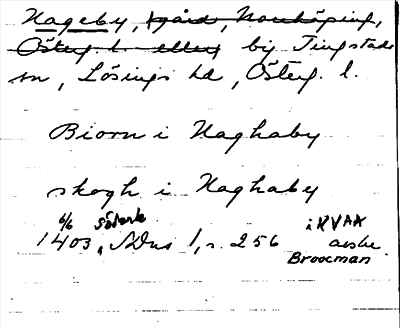 Hageby, gård, Norrköping,
Österg. l. eller by Tingstads
sn, Lösings hd, Österg. l.
Biorn i Naghaby
skogh i Naghaby
6/6 Söderk i KVAA
1403, SDns 1, s. 256 avskr
Broocman